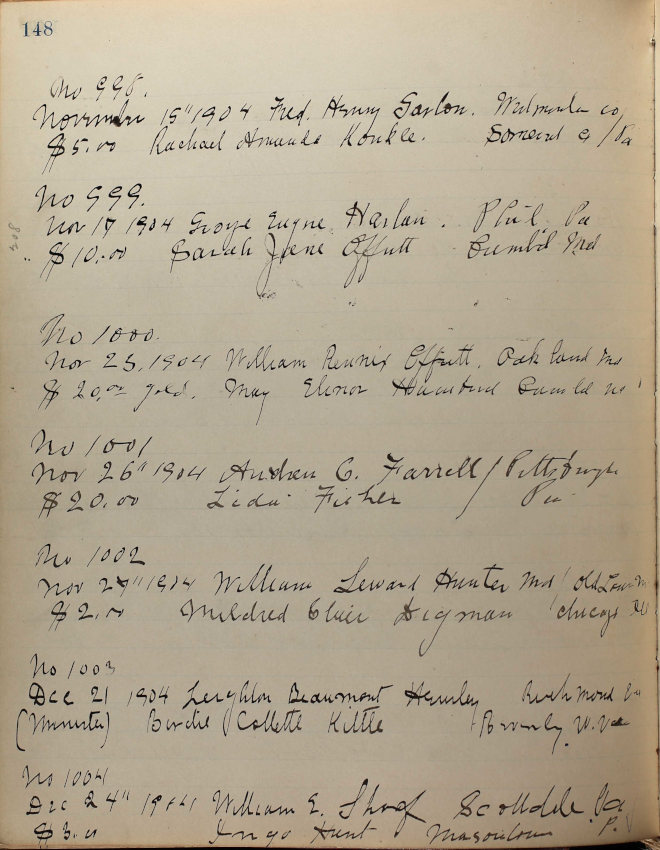 148
No 998.
November 15" 1904 Fred. Henry Co
$5.00 Rachael Amanda Konkle. Somerset Co / Pa
No 999.
Nov 17 1904 George Eugne Harlan. Phil. Pa
$10.00 Sarah Jane Offutt Cumbl'd Md
No 1000.
Nov 23, 1904 William Rennix Offutt. Oakland Md
$20.00 gold. May Elenor Cumbld
No 1001
Nov 26" 1904 Andrew C. Farrell / Pittsburgh
$20.00 Lida Fisher Pa
No 1002
Nov 27" 1904 William Seward Hunter Md / Old
$2.00 Mildred Clair Digman Chicago Ill
No 1003
Dec 21 1904 Leighton Beaumont Hensley Richmond Va
(Minister) Birdie Collette Kittle Beverly W. Va
No 1004
Dec 24" 1904 William E. Shoaf Scottdale Pa
$3.00 Hunt Masontown P.